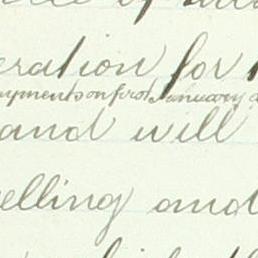 eration for
ayments on first January
and will
elling and